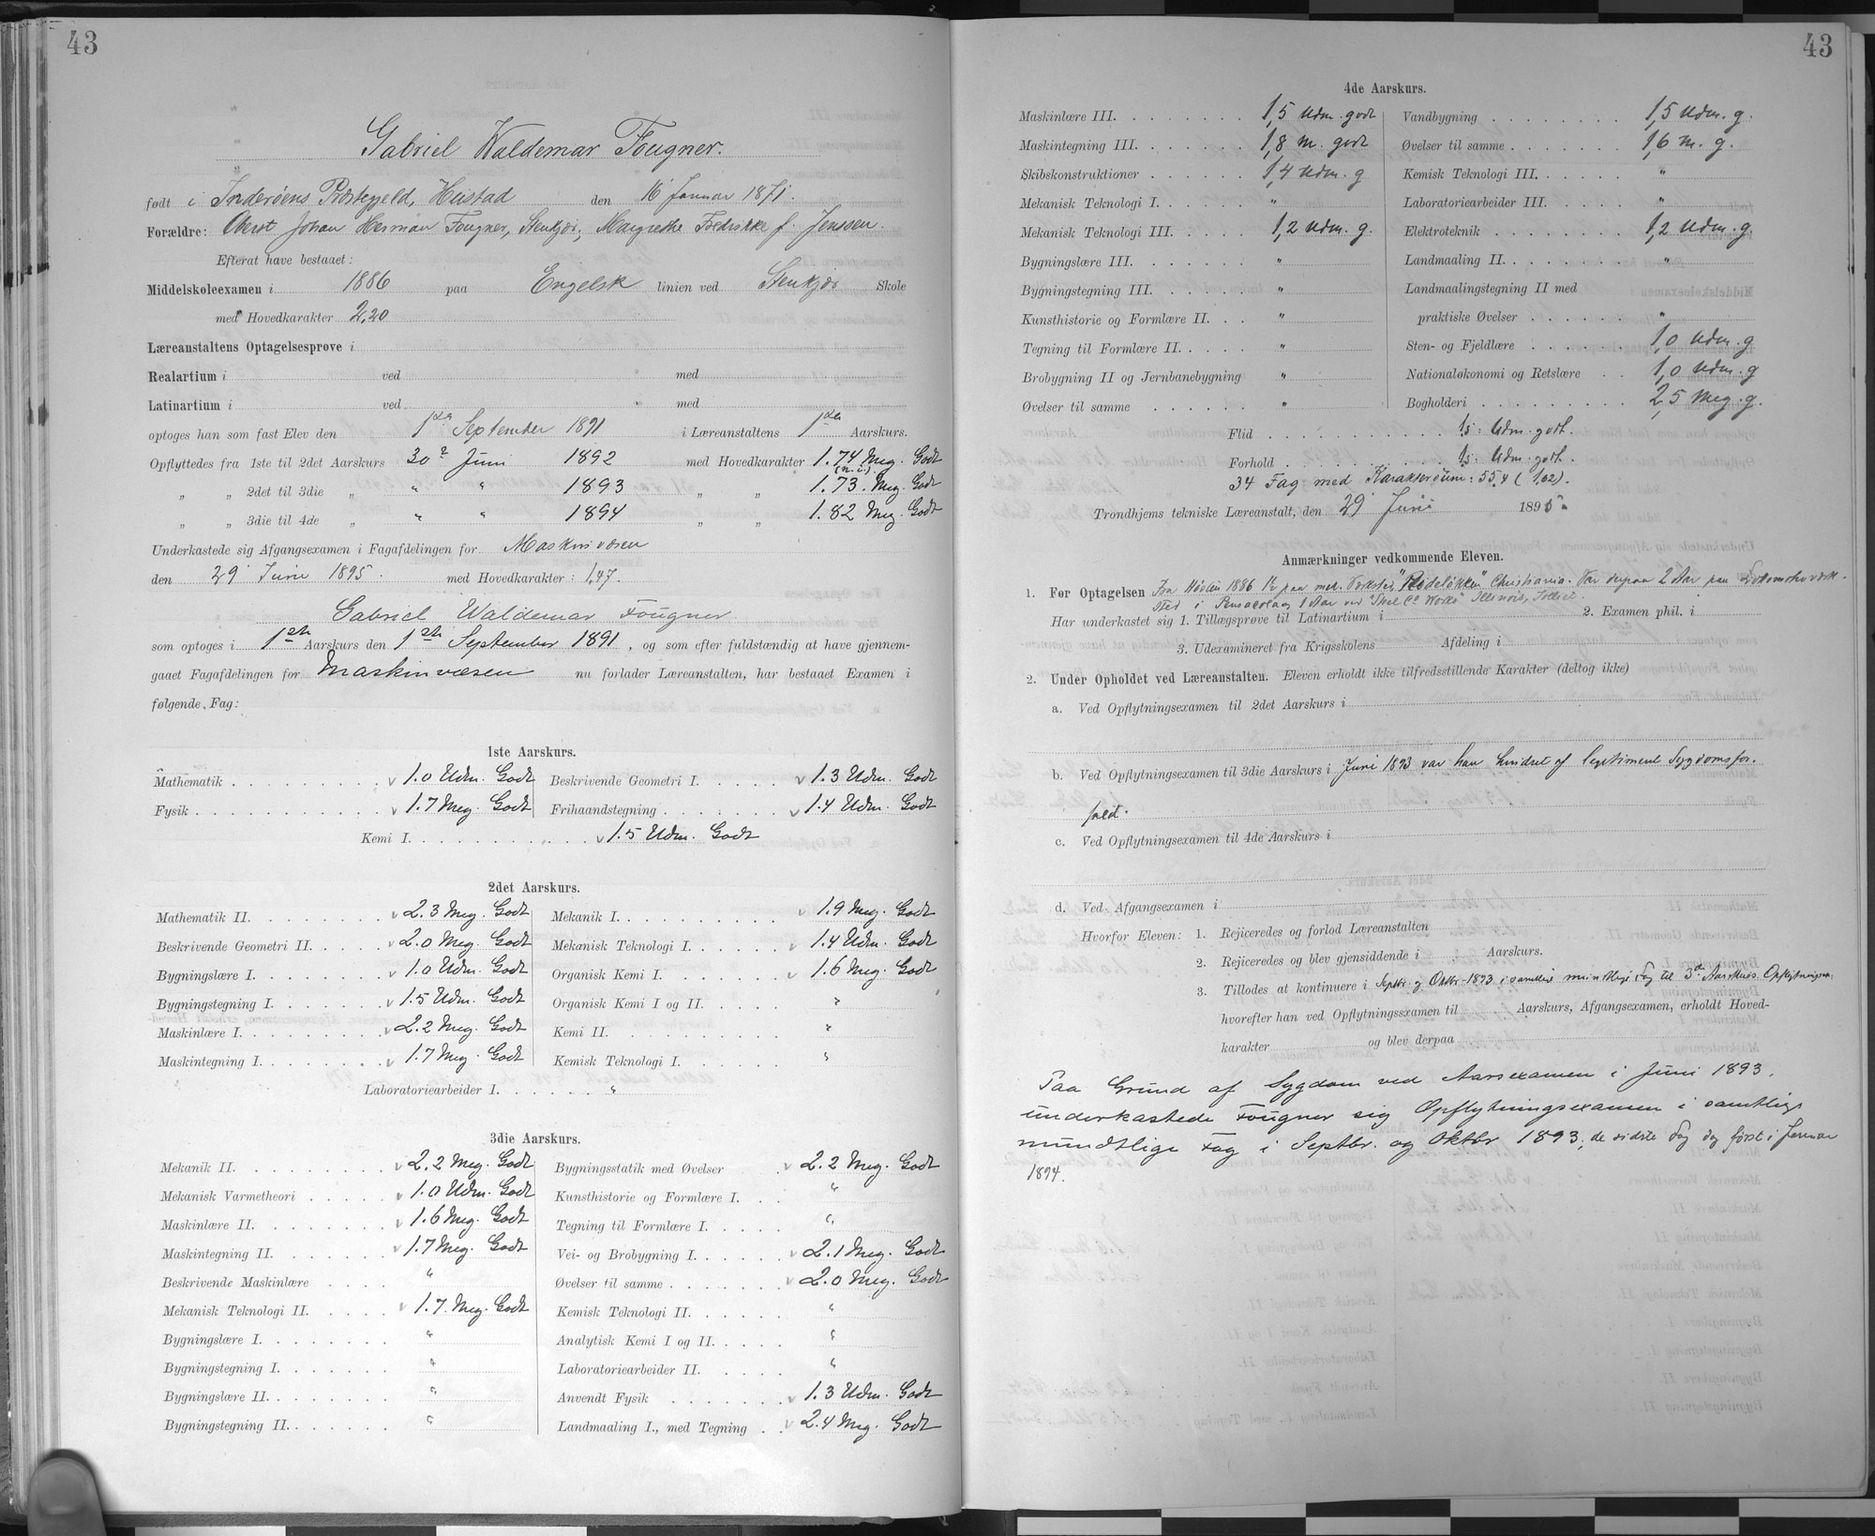 43
Gabriel Waldemar Fougner.
født i Inderøens Præstegjeld, Hustad den 16 Januar 1871.
Forældre: Oberst Johan Herman Fougner, Stenkjær, Margrethe Fredrikke f. Jenssen.
Efterat have bestaaet:
Middelskoleexamen i 1886 paa Engelsk linien ved Stenkjær Skole
med Hovedkarakter 2,20
Læreanstaltens Optagelsesprøve i
Realartium i ved med
Latinartium i ved med
optoges han som fast Elev den 1ste September 1891 i Læreanstaltens 1ste Aarskurs.
Opflyttedes fra 1ste til 2det Aarskurs 30 Juni 1892 med Hovedkarakter 1.74 Meg. Godt
„ „ 2det til 3die „ " " 1893 „ „ 1.73. Meg. Godt
„ „ 3die til 4de „ " " 1894 „ „ 1.82 Meg. Godt
Underkastede sig Afgangsexamen i Fagafdelingen for Maskinvæsen
den 29 Juni 1895. med Hovedkarakter: 1,47.
Gabriel Waldemar Fougner
som optoges i 1ste Aarskurs den 1ste September 1891, og som efter fuldstændig at have gjennem-
gaaet Fagafdelingen for Maskinvæsen nu forlader Læreanstalten, har bestaaet Examen i
følgende Fag:
1ste Aarskurs.
Mathematik 1.0 Udm. Godt Beskrivende Geometri I. 1.3 Udm. Godt
Fysik 1.7 Meg. Godt Frihaandstegning 1.4 Udm. Godt
Kemi I. 1.5 Udm. Godt
2det Aarskurs.
Mathematik II. 2.3 Meg. Godt Mekanik I. 1.9 Meg. Godt
Beskrivende Geometri II. 2.0 Meg. Godt Mekanisk Teknologi I. 1.4 Udm. Godt
Bygningslære I. 1.0 Udm. Godt Organisk Kemi I. 1.6 Meg. Godt
Bygningstegning I. 1.5 Udm. Godt Organisk Kemi I og II. "
Maskinlære I. 2.2 Meg. Godt Kemi II. "
Maskintegning I. 1.7 Meg. Godt Kemisk Teknologi I. "
Laboratoriearbeider I. "
3die Aarskurs.
Mekanik II. 2.2 Meg. Godt Bygningsstatik med Øvelser 2.2 Meg. Godt
Mekanisk Varmetheori 1.0 Udm. Godt Kunsthistorie og Formlære I. "
Maskinlære II. 1.6 Meg. Godt Tegning til Formlære I. "
Maskintegning II. 1.7 Meg. Godt Vei- og Brobygning I. 2.1 Meg. Godt
Beskrivende Maskinlære " Øvelser til samme 2.0 Meg. Godt
Mekanisk Teknologi II. 1.7. Meg. Godt Kemisk Teknologi II. "
Bygningslære I. " Analytisk Kemi I og II. "
Bygningstegning I. " Laboratoriearbeider II. "
Bygningslære II. " Anvendt Fysik 1.3 Udm. Godt
Bygningstegning II. " Landmaaling I., med Tegning 2.4 Meg. Godt
43
4de Aarskurs.
Maskinlære III. 1,5 Udm. godt Vandbygning 1,5 Udm. g.
Maskintegning III. 1,8 M. godt Øvelser til samme 1,6 M. g.
Skibskonstruktioner 1,4 Udm. g Kemisk Teknologi III. "
Mekanisk Teknologi I. " Laboratoriearbeider III. "
Mekanisk Teknologi III. 1,2 Udm. g. Elektroteknik 1,2 Udm. g.
Bygningslære III. " Landmaaling II. "
Bygningstegning III. " Landmaalingstegning II med
Kunsthistorie og Formlære II. " praktiske Øvelser "
Tegning til Formlære II. " Sten- og Fjeldlære 1,0 Udm. g
Brobygning II og Jernbanebygning " Nationaløkonomi og Retslære 1,0 Udm. g
Øvelser til samme " Bogholderi 2,5 Meg. g.
Flid 1,5: Udm. godt.
Forhold 1,5: Udm. godt.
34 Fag med Karaktersum: 55,4 (1,62).
Trondhjems tekniske Læreanstalt, den 29 Juni 1895
Anmærkninger vedkommende Eleven.
1. Før Optagelsen Fra Høsten 1886 1½ paa mek. Værksted "Rodeløkken" Christiania. Var derpaa 2 Aar paa Lokomotivværk-
sted i Pensacola, 1 Aar ved "Steel Co Works" Illinois, Joliet.
Har underkastet sig 1. Tillægsprøve til Latinartium i 2. Examen phil. i
3. Udexamineret fra Krigsskolens Afdeling i
2. Under Opholdet ved Læreanstalten. Eleven erholdt ikke tilfredsstillende Karakter (deltog ikke)
a. Ved Opflytningsexamen til 2det Aarskurs i
b. Ved Opflytningsexamen til 3die Aarskurs i Juni 1893 var han hindret af legitimeret Sygdomsfor-
fald.
c. Ved Opflytningsexamen til 4de Aarskurs i
d. Ved Afgangsexamen i
Hvorfor Eleven: 1. Rejiceredes og forlod Læreanstalten
2. Rejiceredes og blev gjensiddende i Aarskurs.
3. Tillodes at kontinuere i Septbr. og Oktbr. 1893 i samtlige mundtlige Fag til 3die Aarskurs Opflytningsex.
hvorefter han ved Opflytningssxamen til Aarskurs, Afgangsexamen, erholdt Hoved-
karakter og blev derpaa
Paa Grund af Sygdom ved Aarsexamen i Juni 1893,
underkastede Fougner sig Opflytningsexamen i samtlige
mundtlige Fag i Septbr. og Oktbr 1893, de sidste Fag dog først i Januar
1894.